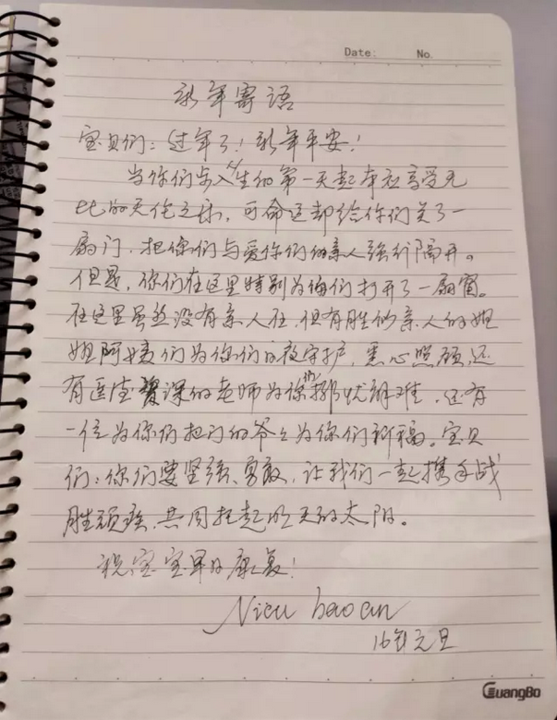 Date: No.
新年寄语
宝贝们：过年了！新年平安！
当你们步入人生的第一天起本应享受无
比的天伦之乐，可命运却给你们关了一
扇门，把你们与爱你们的亲人强行隔开。
但是，你们在这里特别为你们打开了一扇窗。
在这里虽然没有亲人在，但有胜似亲人的姐
姐阿姨们为你们日夜守护，悉心照顾，还
有医术深的老师为你们排忧解难，还有
一位为你们把门的爷爷为你们祈福。宝贝
们：你们要坚强、勇敢，让我们一起携手战
胜顽疾，共同托起明天的太阳。
祝宝宝早日康复！
bao an
16年元旦
GuangBo